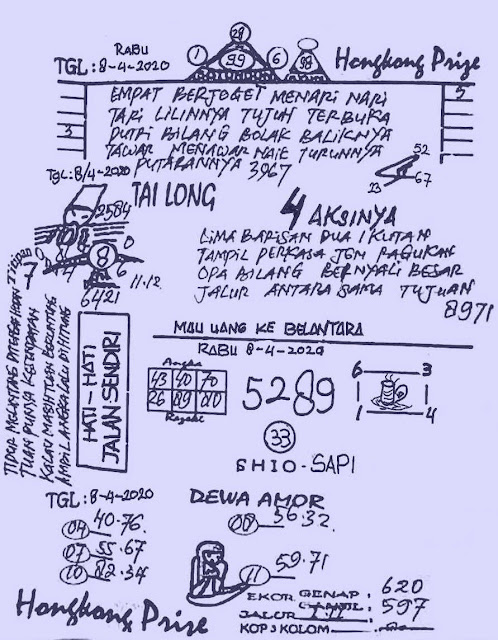 RABU
TGL : 8-4-2020
28
1
99
6
98
Hongkong Prize
BATUMPUN
5
3
EMPAT BERJOGET MENARI NARI
TARI LILINNYA TUJUH TERBUKA
PUTRI BILANG BOLAK BALIKNYA
TAWAR MENAWAR NAIE TURUNNYA
PUTARANNYA 3967
52
23
67
TGL: 8/4-2020
TAI LONG
2584
0
8
7
4
6
11.12.
6421
4 AKSINYA
LIMA BARISAN DUA IKUTAN
TAMPIL PERKASA JGN RAGUKAN
OPA BILANG BERNYALI BESAR
JALUR ANTARA SAMA TUJUAN
8971
Titipan
TUAN PUNYA
KALAU MABIHTUAN BERUNTUNG
AMPIL ANGKA LALU DIHITUNG
HATI-HATI
JALAN SENDIRI
MAU UANG KE BELANTARA
RABU 8-4-2020
Angka
43 40 70
26 89 210
Rezeki
5289
6 3
1 4
33
SHIO-SAPI
TGL : 8-4-2020
04 40.76.
07 55.67
10 82.34
DEWA AMOR
08 56.32.
11 59.71
EKOR GENAP : 620
GANJIL : 597
JALUR
KOP 3 KOLOM
Hongkong Prize